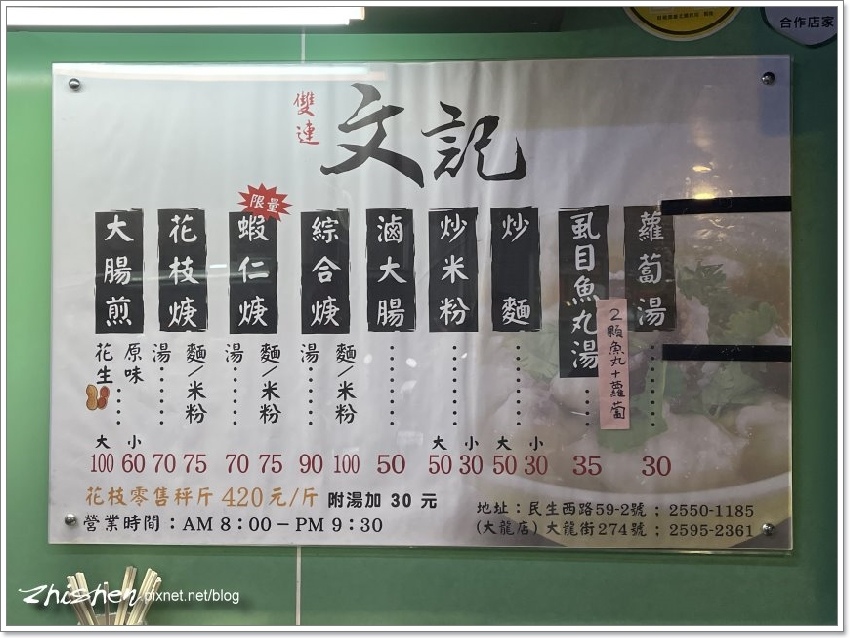 合作店家
雙連
文記
限量
大腸煎
花枝焿
蝦仁焿
綜合焿
滷大腸
炒米粉
炒麵
虱目魚丸湯
蘿蔔湯
2顆魚丸+蘿蔔
花生
原味
湯
麵/米粉
湯
麵/米粉
湯
麵/米粉
大 小 大 小 大 小
100 60 70 75 70 75 90 100 50 50 30 50 30 35 30
花枝零售秤斤 420元/斤 附湯加 30 元
營業時間:AM 8:00-PM 9:30
地址:民生西路59-2號:2550-1185
(大龍店)大龍街274號:2595-2361
zhizhen.pixnet.net/blog